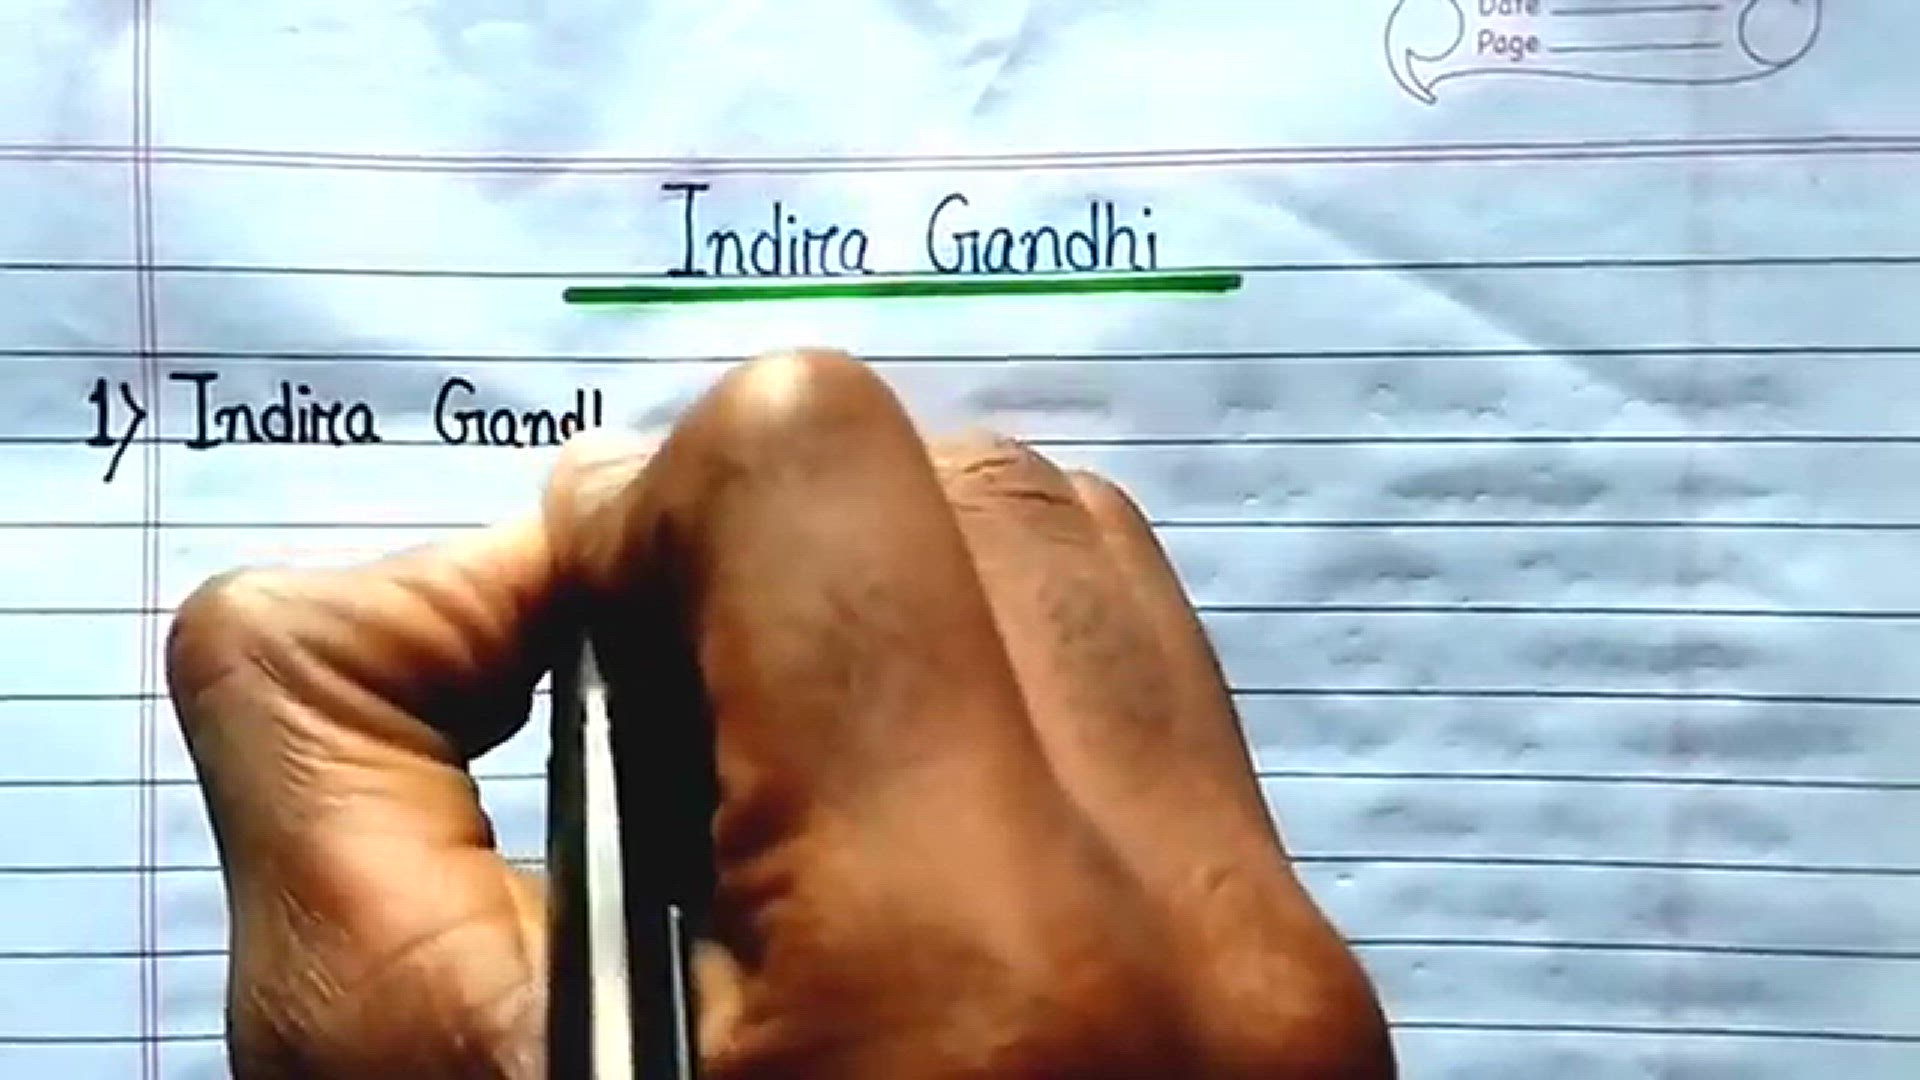 Date
Page
Indira Gandhi
1) Indira Gand